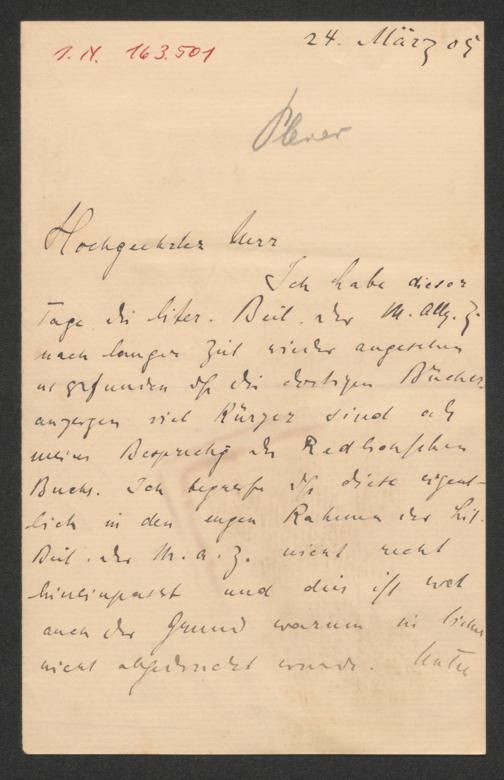 I. N. 163.501
24. März 05
Plener
Hochgeehrter Herr
Ich habe dieser
Tage die liter. Beil. der M. Allg. Z.
nach langer Zeit wieder angesehen
u gefunden dß die dortigen Bücher-
anzeigen viel kürzer sind als
meine Besprechg des Redlichschen
Buchs. Ich begreife dß diese eigent-
lich in den engen Rahmen der Lit.
Beil. der M. A. Z. nicht recht
hineinpasst und dies ist wol
auch der Grund warum sie bisher
nicht abgedruckt wurde. Unter